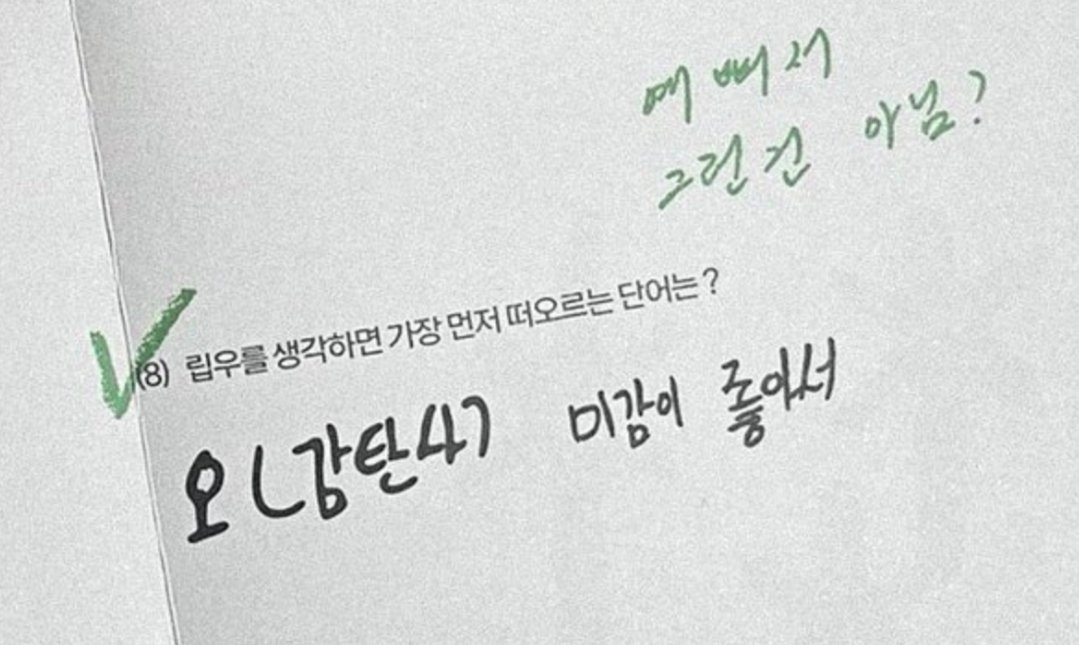 예뻐서
그런건 아님?
(8) 립우를 생각하면 가장 먼저 떠오르는 단어는?
오 (감탄사) 미감이 좋아서